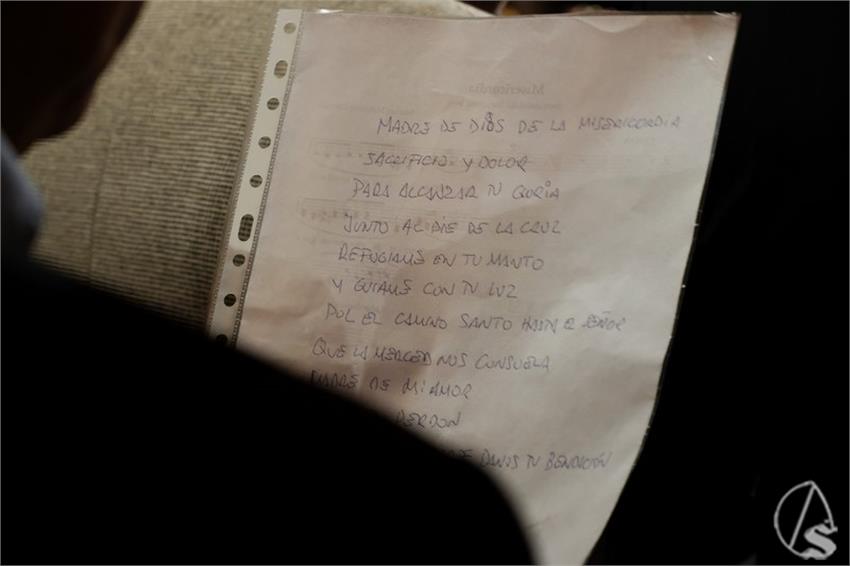 Misericordia
MADRE DE DIOS DE LA MISERICORDIA
SACRIFICIO Y DOLOR
PARA ALCANZAR TU GLORIA
JUNTO AL PIE DE LA CRUZ
REFUGIAME EN TU MANTO
Y GUIAME CON TU LUZ
POR EL CAMINO SANTO HASTA EL SEÑOR
QUE LA MERCED NOS CONSUELA
MADRE DE MI AMOR
PERDON
DANOS TU BENDICIÓN